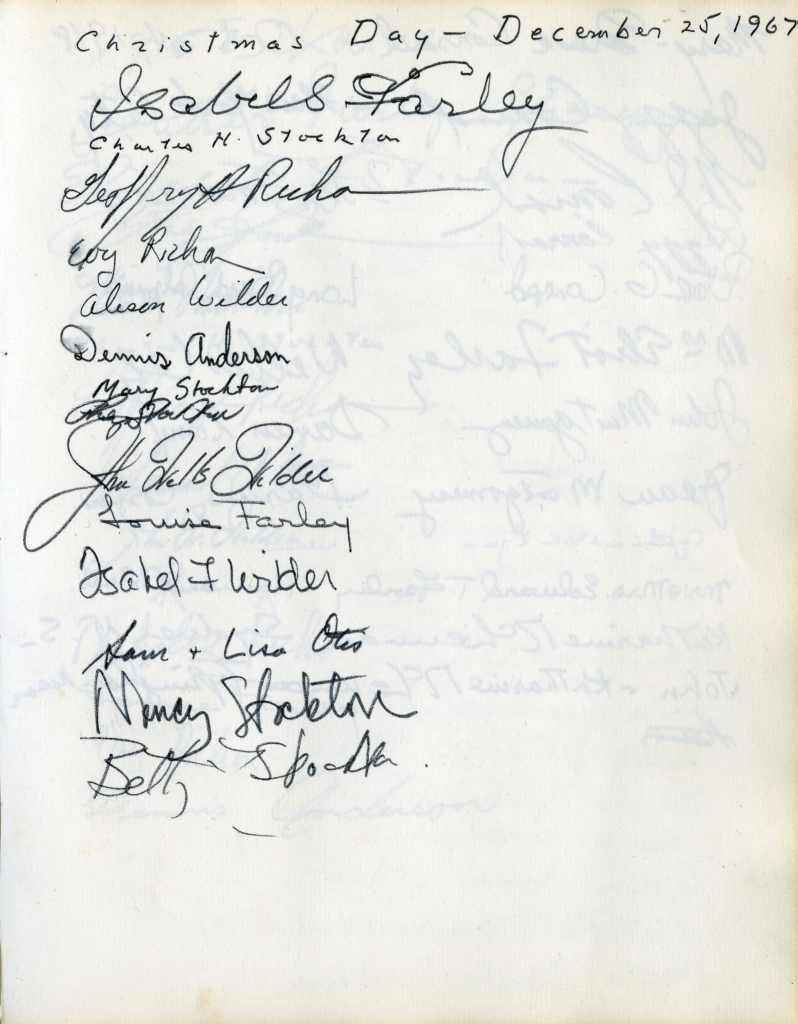 Christmas Day - December 25, 1967
Isabel S Farley
Charles H. Stockton
Geoffry A Richa
Evy Richa
Alison Wilder
Dennis Anderson
Mary Stockton
John Wells Wilder
Louise Farley
Isabel F Wilder
Sam + Lisa Otis
Nancy Stockton
Betty Stockton